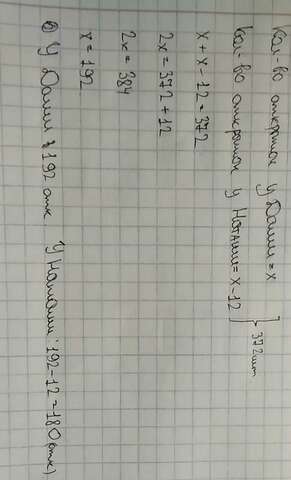 Кол-во открыток у Даши = x
Кол-во открыток у Наташи = x - 12 } 372 шт
x + x - 12 = 372
2x = 372 + 12
2x = 384
x = 192
У Даши 192 отк У Наташи: 192 - 12 = 180 (отк)